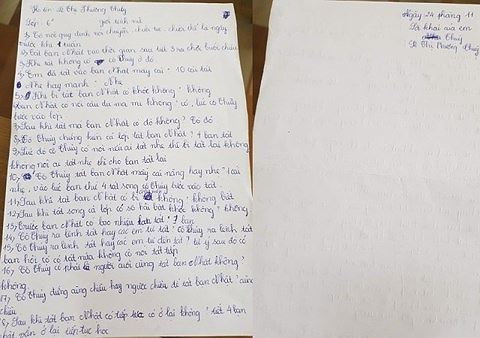 Họ tên: Lê Thị Phương Thúy
Lớp: 6⁴ giới tính nữ
1, Cô nói quy định nói chuyện, chửi tục, chưa thể là ngày
trước khi 1 tuần
2, Tát bạn Nhật vào thời gian của tiết 3 ra chơi buổi chiều
3, Khi tát không có cô Thủy ở đó
4, Em đã tát vào bạn Nhật mấy cái: 10 cái tát
Nhẹ hay mạnh: Nhẹ
5, Khi bị tát bạn Nhật có khóc không: không
bạn Nhật có nói câu đó mà mi không: có, lúc cô Thủy
bước vào lớp.
7, Sau khi tát má bạn Nhật có đỏ không? Có đỏ
8, Cô Thủy chứng kiến cả lớp tát bạn Nhật: 4 bạn tát
9, Lúc đó cô Thủy có nói nếu ai tát nhẹ thì bị tát lại không
không nói ai tát nhẹ thì cho bạn tát lại
10, Cô Thủy tát bạn Nhật mấy cái nặng hay nhẹ: 1 cái
nhẹ, vào lúc bạn thứ 4 tát xong cô Thủy bước vào tát.
11, Sau khi tát bạn Nhật có bị không: không biết
12, Sau khi tát xong cả lớp có sợ hãi bật khóc không: không
13, Trước bạn Nhật có bao nhiêu bạn tát: 7 bạn
14, Cô Thủy ra lệnh tát hay các em tự tát: cô Thủy ra lệnh tát
15, Cô Thủy ra lệnh tát hay các em tự đến tát? tự ý sau đó có
bạn hỏi cô có tát nữa không cô nói tát tiếp
16, Cô Thủy có phải là người cuối cùng tát bạn Nhật không?
không
17, Cô Thủy đứng cùng chiều hay ngược chiều để tát bạn Nhật: cùng
chiều
18, Sau khi tát bạn Nhật có tiếp tục có ở lại không: tiết 4 bạn
nhật vẫn ở lại tiếp tục học
Ngày 24 tháng 11
Là khai của em
Thúy
Lê Thị Phương Thúy